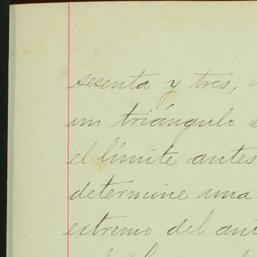 sesenta y tres,
un triángulo
el límite antes
determine una
extremo del